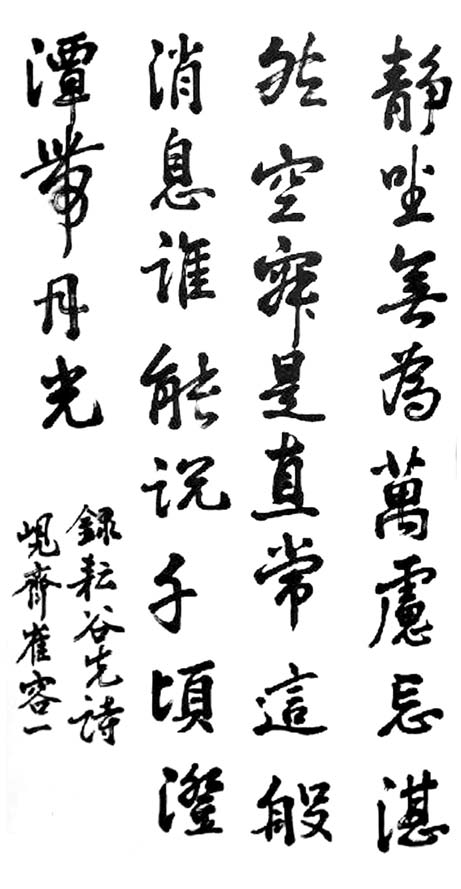 靜坐無為萬慮忘湛
然空寂是真常這般
消息誰能説千頃澄
潭帶月光
錄耘谷先詩
峴齊崔容一